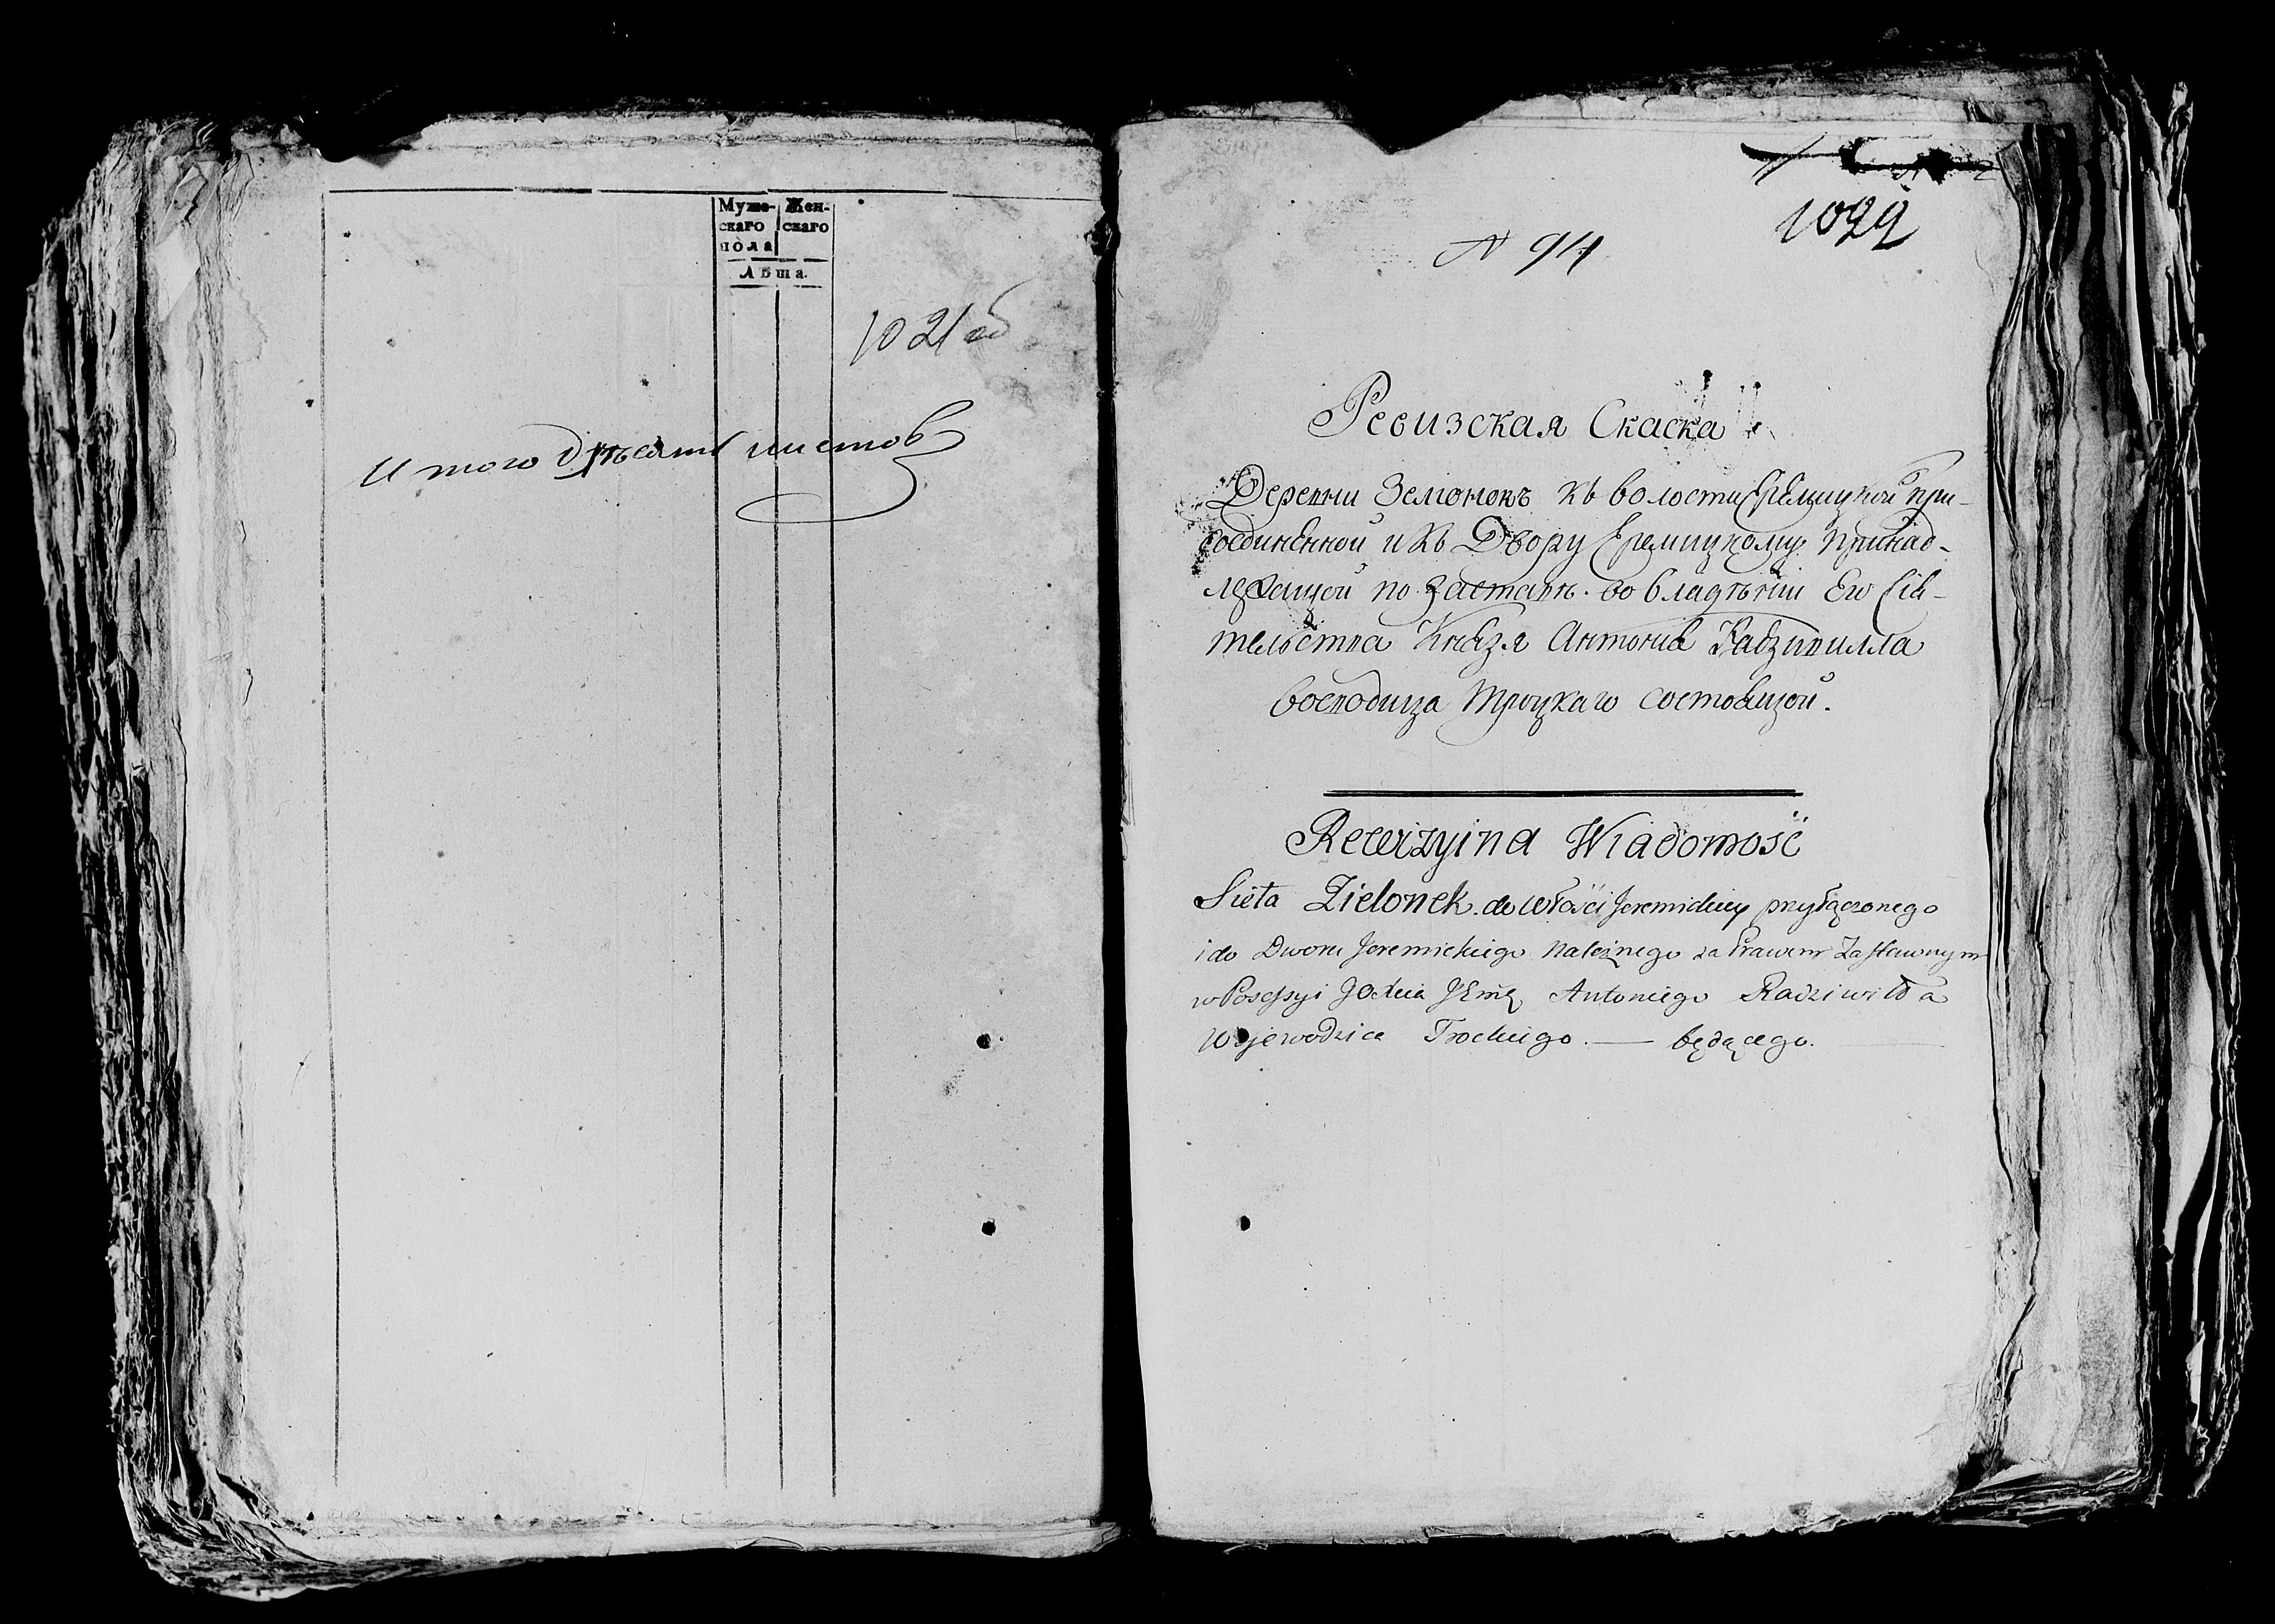 Муже- Жен-
скаго скаго
пола
Лѣта.
1021 об
Итого девять листов
1022
N 94
Ревизская Скаска
Деревни Зелюнокъ къ волости Еремицкой при-
соединенной и къ Двору Еремицкому принад-
лежащой по заставѣ во владѣніи Его Сія-
тельства Князя Антонія Радзивилла
воеводица Троцкаго состоящой.
Rewizyina Wiadomość
Sieła Zielonek do włości Jeremickiey przyłączonego
i do Dworu Jeremickiego należnego za Prawem Zastawnym
w Posessyi JOXcia JEmę Antoniego Radziwiłła
Wojewodzica Trockiego. — będącego.